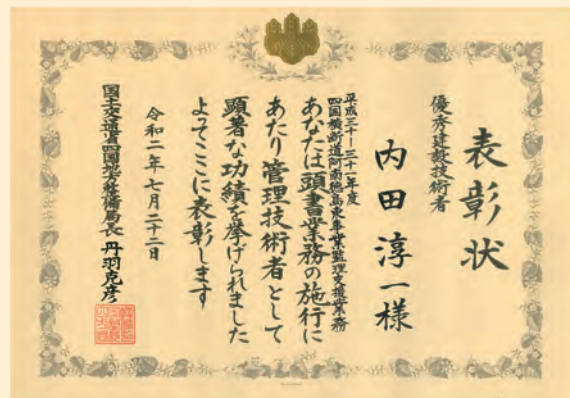 表彰状
優秀建設技術者
内田淳一様
平成三十ー三十一年度
四国横断道阿南徳島東事業監理支援業務
あなたは頭書業務の施行に
あたり管理技術者として
顕著な功績を挙げられました
よってここに表彰します
令和二年七月二十二日
国土交通省四国地方整備局長 丹羽克彦